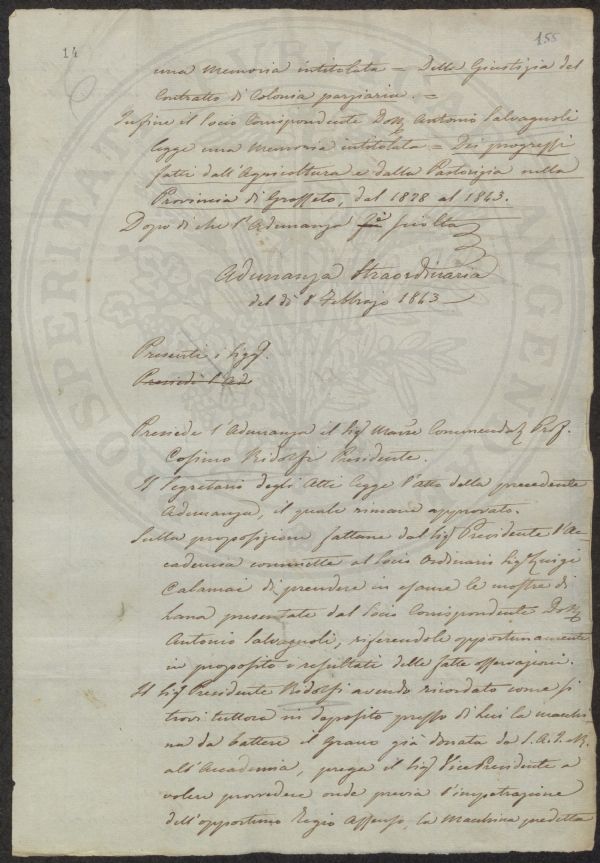 14
155
una Memoria intitolata = Della Giustizia del
Contratto di Colonia parziaria. =
Infine il Socio Corrispondente Dott. Antonio Salvagnoli
legge una Memoria intitolata = Dei progressi
fatti dall'Agricoltura e dalla Pastorizia nella
Provincia di Grosseto, dal 1828 al 1843.
Dopo di che l'Adunanza fu sciolta
Adunanza Straordinaria
del dì 8 Febbrajo 1843
Presenti i Sigg.
Presiede l'Ad
Presiede l'Adunanza il Sig. March. Commendat. Prof.
Cosimo Ridolfi Presidente.
Il Segretario degli Atti legge l'Atto della precedente
Adunanza, il quale rimane approvato.
Sulla proposizione fattane dal Sig. Presidente l'Ac-
cademia commette al Socio Ordinario Sig. Luigi
Calamai di prendere in esame le mostre di
lana presentate dal Socio Corrispondente Dott.
Antonio Salvagnoli, riferendole opportunamente
in proposito i resultati delle fatte osservazioni.
Il Sig. Presidente Ridolfi avendo ricordato come si
trovi tuttora in deposito presso di Lui la macchi-
na da battere il Grano già donata da S. A. I. e R.
all'Accademia, prega il Sig. Vice Presidente a
volere provvedere onde previa l'impetrazione
dell'opportuno Regio Assenso, la Macchina predetta